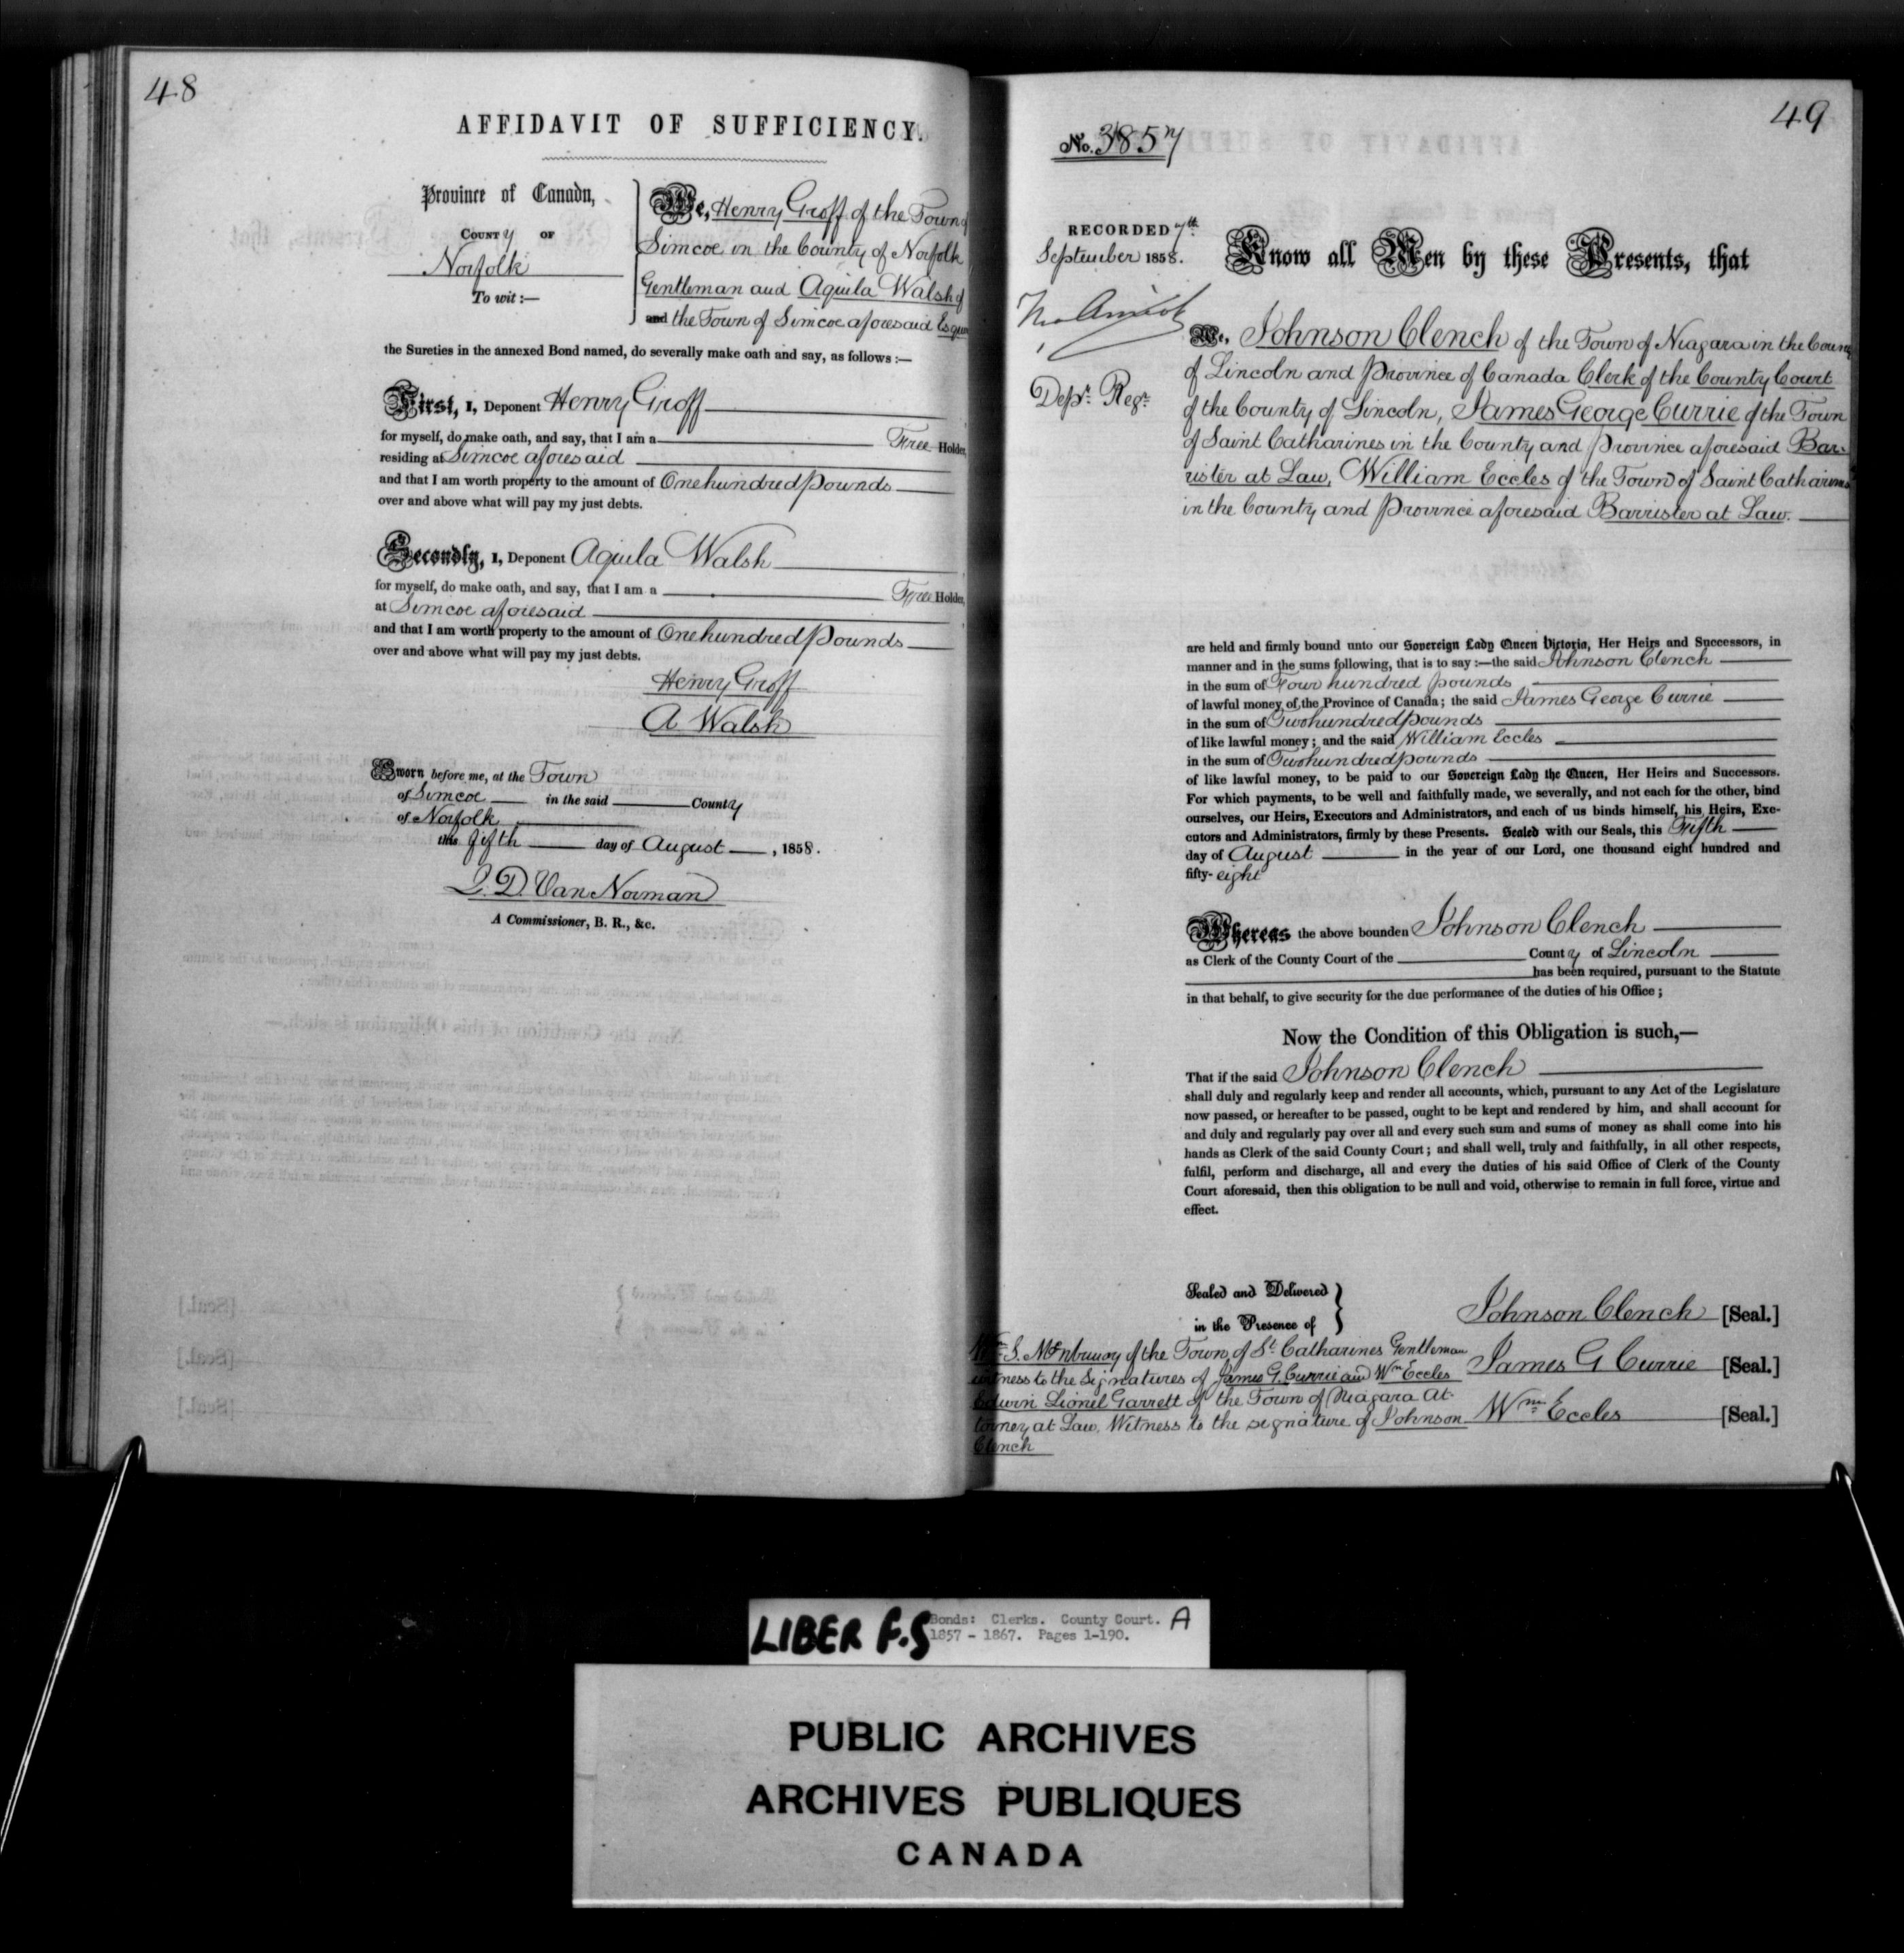 48
AFFIDAVIT OF SUFFICIENCY.
Province of Canada,
County of
Norfolk
To wit :—
We, Henry Groff of the Town of
Simcoe in the County of Norfolk
Gentleman and Aquila Walsh of
and the Town of Simcoe aforesaid Esqui
the Sureties in the annexed Bond named, do severally make oath and say, as follows :—
First, I, Deponent Henry Groff
for myself, do make oath, and say, that I am a Free Holder,
residing at Simcoe aforesaid
and that I am worth property to the amount of One hundred pounds
over and above what will pay my just debts.
Secondly, I, Deponent Aquila Walsh
for myself, do make oath, and say, that I am a Free Holder,
at Simcoe aforesaid
and that I am worth property to the amount of One hundred pounds
over and above what will pay my just debts.
Henry Groff
A Walsh
Sworn before me, at the Town
of Simcoe in the said County
of Norfolk
this fifth day of August, 1858.
D. Van Norman
A Commissioner, B. R., &c.
49
No. 3857
RECORDED 7th
September 1858.
Depy. Regr.
Know all Men by these Presents, that
We, Johnson Clench of the Town of Niagara in the County
of Lincoln and Province of Canada Clerk of the County Court
of the County of Lincoln, James George Currie of the Town
of Saint Catharines in the County and Province aforesaid Bar-
rister at Law, William Eccles of the Town of Saint Catharines
in the County and Province aforesaid Barrister at Law.
are held and firmly bound unto our Sovereign Lady Queen Victoria, Her Heirs and Successors, in
manner and in the sums following, that is to say :—the said Johnson Clench
in the sum of Four hundred pounds
of lawful money of the Province of Canada; the said James George Currie
in the sum of Two hundred pounds
of like lawful money; and the said William Eccles
in the sum of Two hundred pounds
of like lawful money, to be paid to our Sovereign Lady the Queen, Her Heirs and Successors.
For which payments, to be well and faithfully made, we severally, and not each for the other, bind
ourselves, our Heirs, Executors and Administrators, and each of us binds himself, his Heirs, Exe-
cutors and Administrators, firmly by these Presents. Sealed with our Seals, this Fifth
day of August in the year of our Lord, one thousand eight hundred and
fifty-eight
Whereas the above bounden Johnson Clench
as Clerk of the County Court of the County of Lincoln
has been required, pursuant to the Statute
in that behalf, to give security for the due performance of the duties of his Office ;
Now the Condition of this Obligation is such,—
That if the said Johnson Clench
shall duly and regularly keep and render all accounts, which, pursuant to any Act of the Legislature
now passed, or hereafter to be passed, ought to be kept and rendered by him, and shall account for
and duly and regularly pay over all and every such sum and sums of money as shall come into his
hands as Clerk of the said County Court; and shall well, truly and faithfully, in all other respects,
fulfil, perform and discharge, all and every the duties of his said Office of Clerk of the County
Court aforesaid, then this obligation to be null and void, otherwise to remain in full force, virtue and
effect.
Sealed and Delivered
in the Presence of
Johnson Clench [Seal.]
S. of the Town of St Catharines Gentleman
witness to the Signatures of James G. Currie and Wm Eccles
James G Currie [Seal.]
Edwin Lionel Garrett of the Town of Niagara At-
torney at Law, Witness to the signature of Johnson
Clench
Wm Eccles [Seal.]
LIBER F.S
Bonds: Clerks. County Court. A
1857 - 1867. Pages 1-190.
PUBLIC ARCHIVES
ARCHIVES PUBLIQUES
CANADA